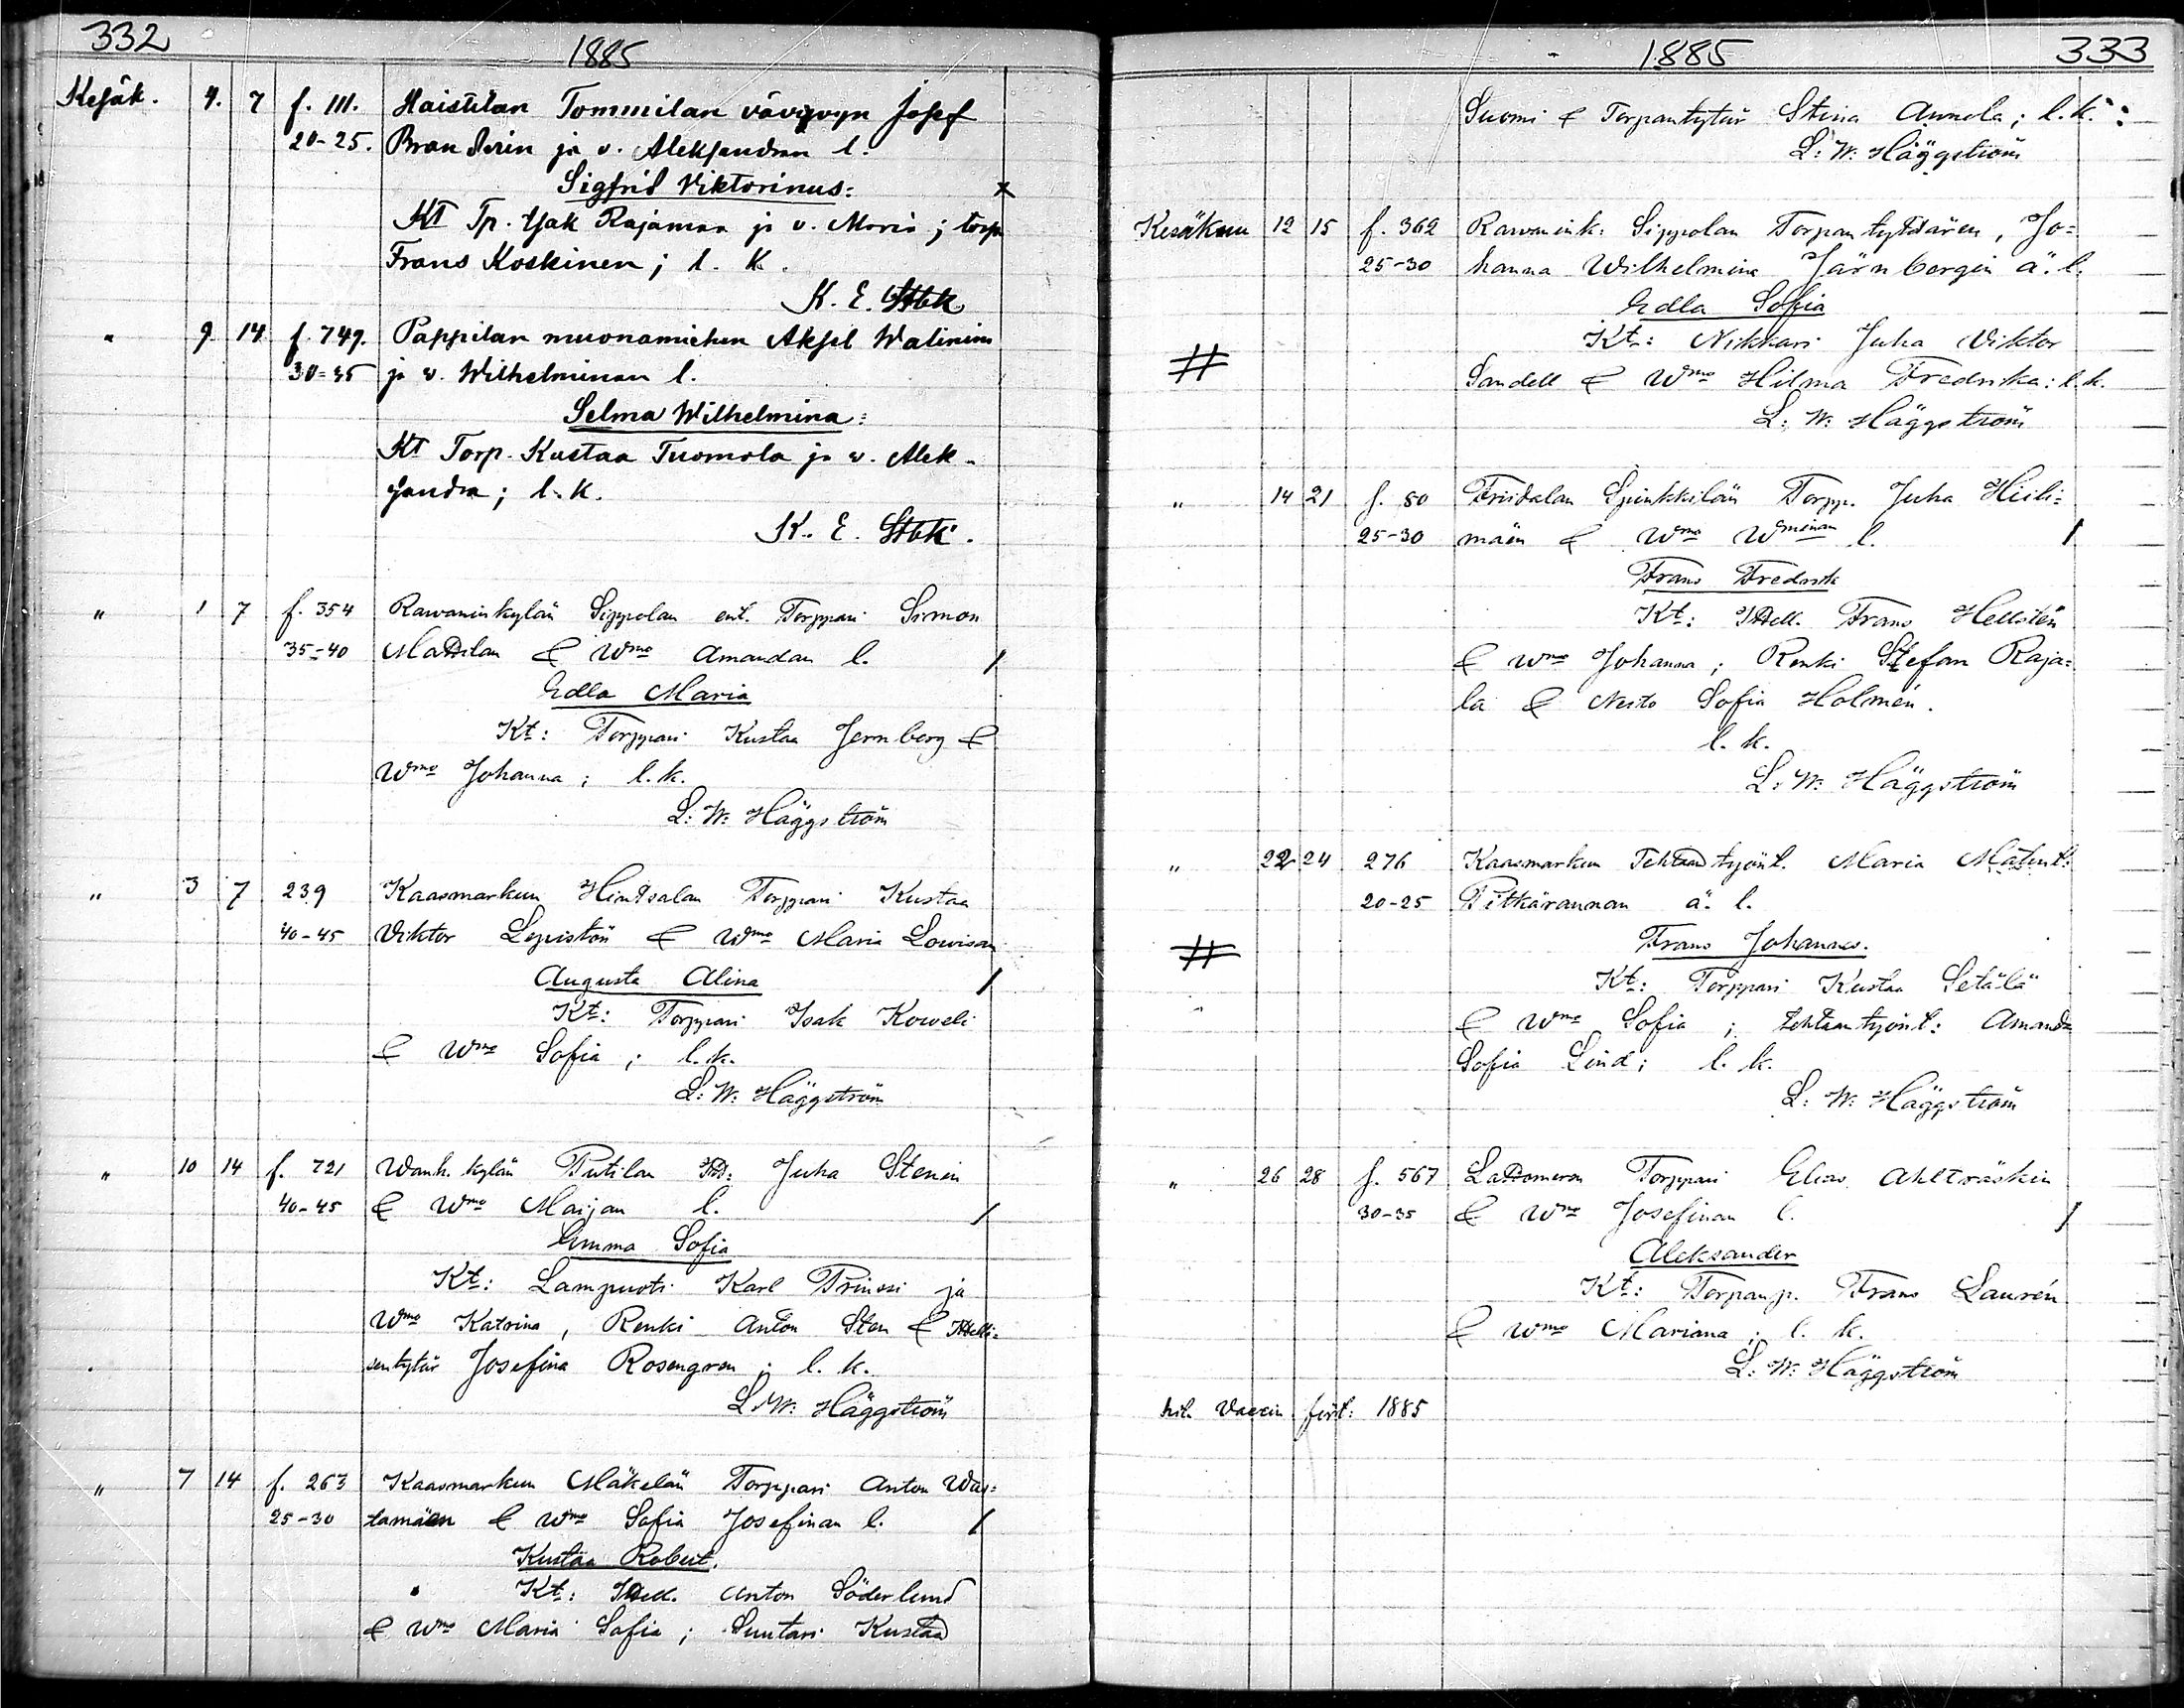 332
1885
Kesäk. 4. 7 f. 111. Haistilan Tommilan vävypojan Josef
20-25. Branderin ja v. Aleksandran l.
Sigfrid Viktorinus: x
Kt Tp. Isak Rajamaa ja v. Maria; torp.
Frans Koskinen; l. k.
K. E. Stbk
" 9 14 f. 749. Pappilan muonamiehen Aksel Walinin
30-35 ja v. Wilhelminan l.
Selma Wilhelmina:
Kt Torp. Kustaa Tuomola ja v. Alek-
sandra; l. k.
K. E. Stbk.
" 1 7 f. 354 Rawaninkylän Sippolan ent. Torppari Simon
35-40 Mattilan & Wmo Amandan l. /
Edla Maria
Kt: Torppari Kustaa Jernberg &
Wmo Johanna; l. k.
L: W: Häggström
" 3 7 239 Kaasmarkun Hintsalan Torppari Kustaa
40-45 Viktor Lepistön & Wmo Maria Lowisan
Augusta Alina /
Kt: Torppari Isak Koweli
& Wmo Sofia; l. k.
L: W: Häggström
" 10 14 f. 721 Wanh. kylän Putilan Juha Stenin
40-45 & Wmo Maijan l. /
Emma Sofia
Kt: Lampuoti Karl Prinssi ja
Wmo Katrina, Renki Anton Sten & Ittelli-
sentytär Josefina Rosengren; l. k.
L. W: Häggström
" 7 14 f. 263 Kaasmarkun Mäkelän Torppari Anton Was-
tamäen & Wmo Sofia Josefinan l. /
Kustaa Robert.
Kt: Ittell. Anton Söderlund
& Wmo Maria Sofia; Suutari Kustaa
1885
333
Suomi & Torpantytär Stina Annola; l. k.:
L: W: Häggström
Kesäkuu 12 15 f. 362 Rawanink: Sippolan Torpantyttären, Jo-
25-30 hanna Wilhelmina Järnbergin ä. l.
Edla Sofia
Kt: Nikkari Juha Viktor
# Sandell & Wmo Hilma Fredrika: l. k.
L: W: Häggström
" 14 21 f. 80 Friidalan Spinkkilän Torpp. Juha Hiili-
25-30 mäen & Wmo Wminan l. /
Frans Fredrik
Kt: Ittell. Frans Hellstén
& Wmo Johanna; Renki Stefan Raja-
la & Neito Sofia Holmén.
l. k.
L: W: Häggström
" 22 24 276 Kaasmarkun Tehtaantyönt. Maria Matint:
20-25 Pitkärannan ä. l.
Frans Johannes.
# Kt: Torppari Kustaa Setälä
& Wmo Sofia; tehtaantyönt: Amanda
Sofia Lind; l. k.
L: W: Häggström
" 26 28 f. 567 Lattomeren Torppari Elias Ahlträskin
30-35 & Wmo Josefinan l. /
Aleksander
Kt: Torpanp. Frans Laurén
& Wmo Mariana; l. k.
L: W: Häggström
Vaccin. fört: 1885